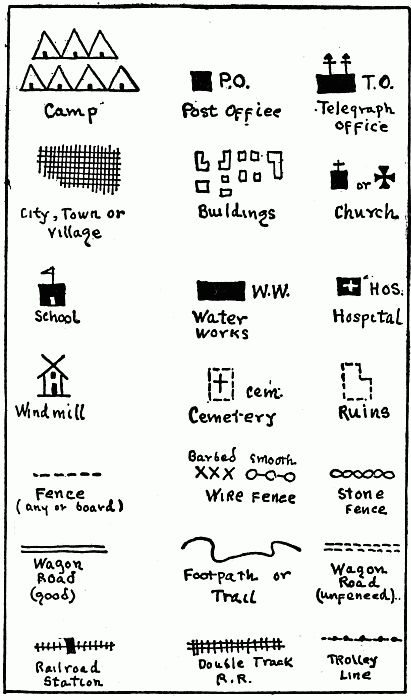 Camp
P.O.
Post Office
T.O.
Telegraph
Office
City, Town or
Village
Buildings
or
Church
School
W.W.
Water
Works
HOS.
Hospital
Windmill
cem.
Cemetery
Ruins
Fence
(any or board)
Barbed Smooth
XXX
Wire Fence
Stone
Fence
Wagon
Road
(good)
Footpath or
Trail
Wagon
Road
(unfenced)..
Railroad
Station
Double Track
R.R.
Trolley
Line